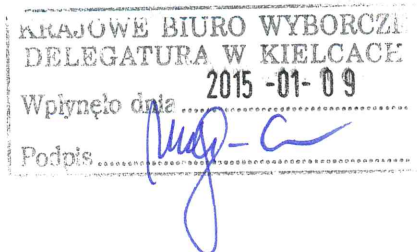 KRAJOWE BIURO WYBORCZE
DELEGATURA W KIELCACH
2015 -01- 09
Wpłynęło dnia
Podpis